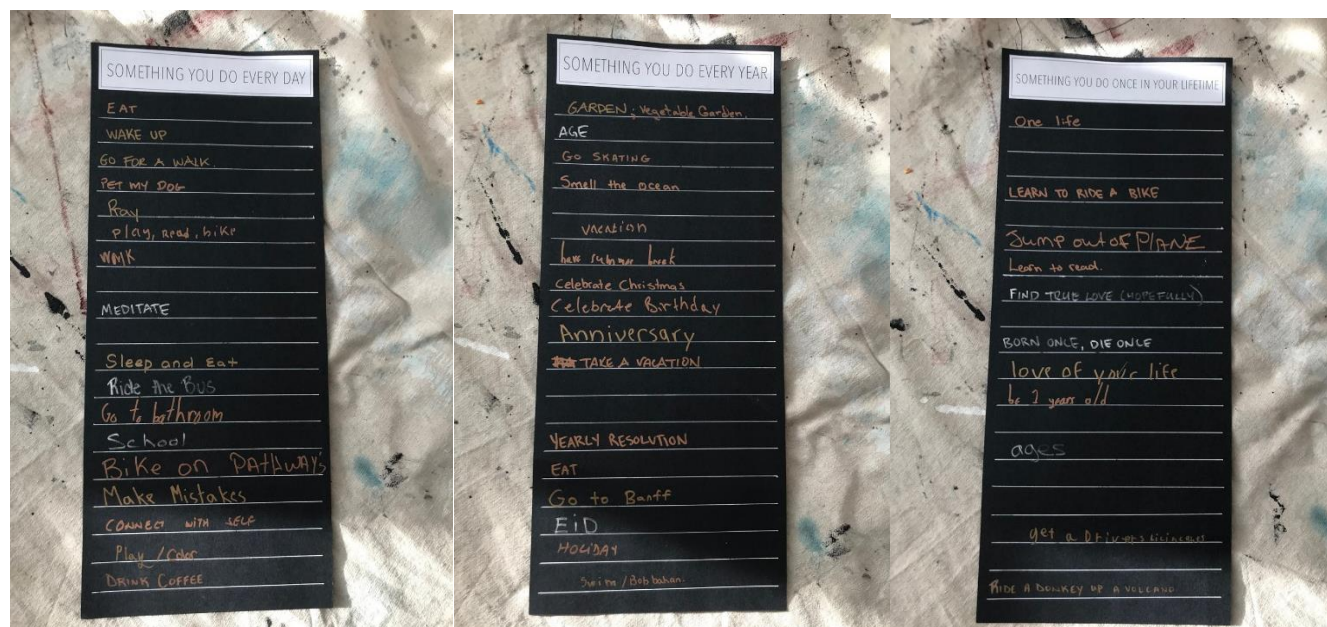 SOMETHING YOU DO EVERY DAY
EAT
WAKE UP
GO FOR A WALK.
PET MY DOG
play, read, bike
WALK
MEDITATE
Sleep and Eat
Ride the Bus
Go to bathroom
School
BiKe on PAtHWAY's
Make Mistakes
CONNECT WITH SELF
Play / Color
DRINK COFFEE
SOMETHING YOU DO EVERY YEAR
GARDEN; Vegetable Garden.
AGE
GO SKATING
Smell the ocean
vacation
have summer break
Celebrate Christmas
Celebrate Birthday
Anniversary
TAKE A VACATION
YEARLY RESOLUTION
EAT
Go to Banff
EiD
HOLiDAY
SOMETHING YOU DO ONCE IN YOUR LIFETIME
One life
LEARN TO RIDE A BIKE
Jump out of PlANE
Learn to read.
FIND TRUE LOVE (HOPEFULLY)
BORN ONCE, DIE ONCE
love of your life
be 2 years old
ages
get a Drivers
RIDE A DONKEY UP A VOLCANO